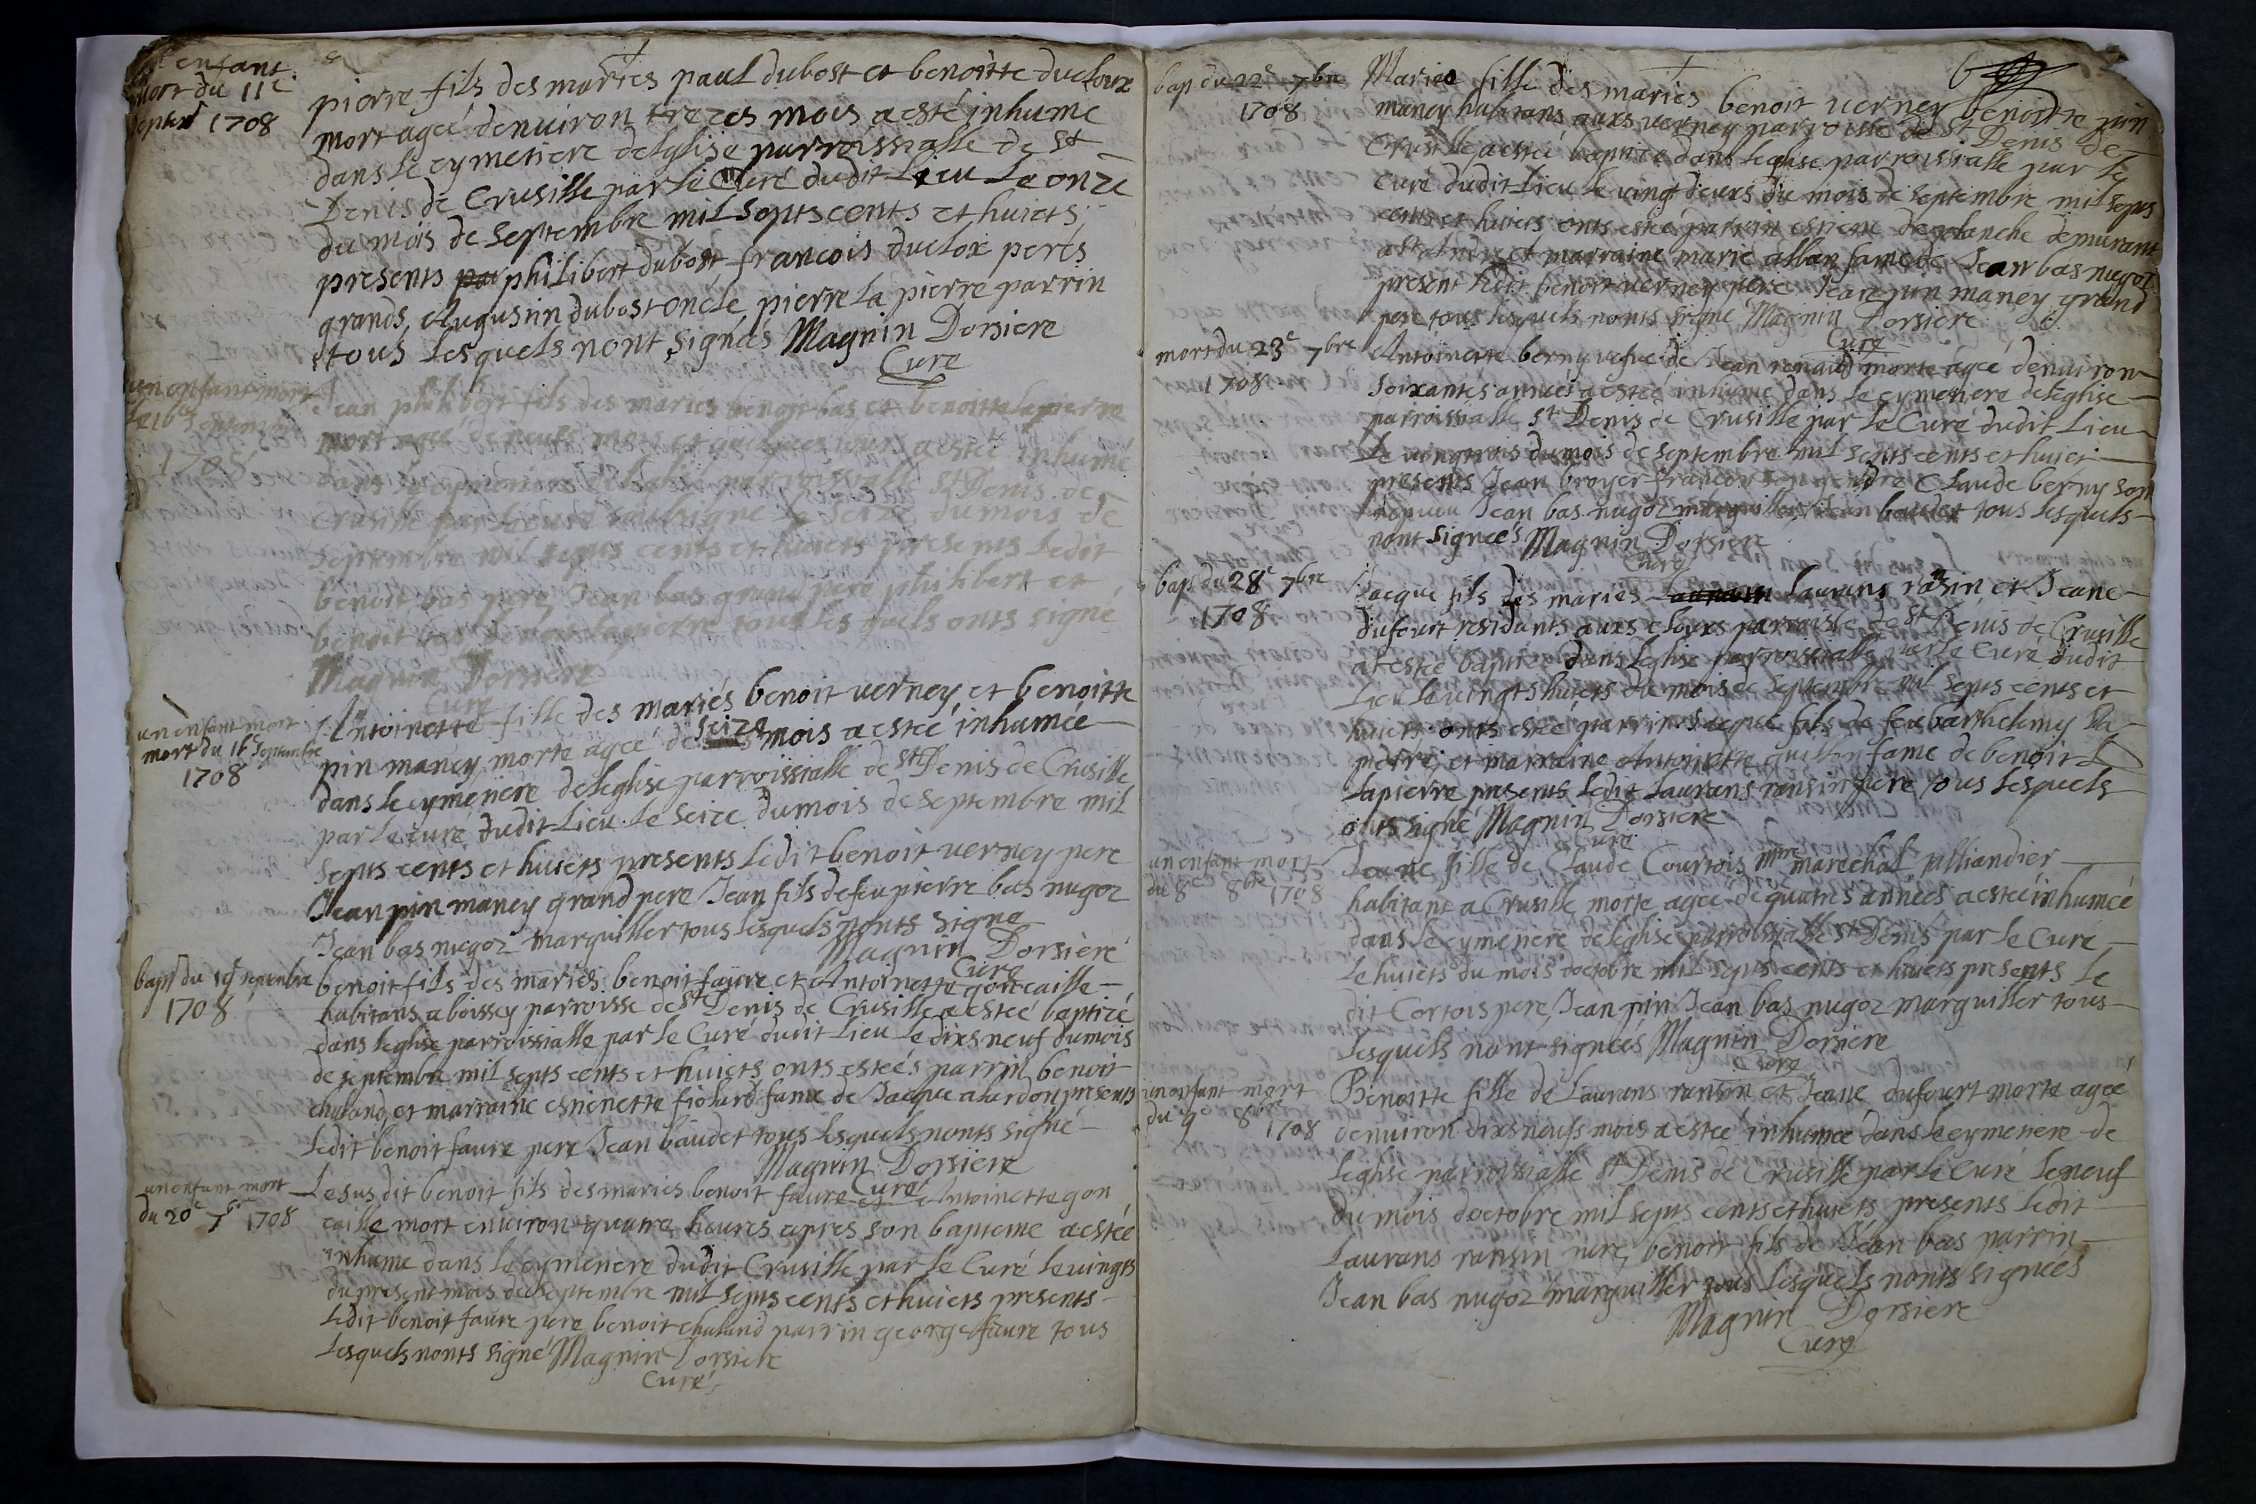 enfant
mort du 11e
septem 1708
pierre fils des mariés paul dubost et benoitte ducloux
mort ageé denuiron trezes mois a esté inhumé
dans le cymetiere delglise parroissialle de St
Denis de Crusille par le Curé dudit Lieu Le onze
du mois de septembre mil septs cents et huiets
presents philibert dubost francois duclox perés
grands, Augustin dubost oncle, pierre la pierre parrin
tous lesquels nont signés Magnin Dorsiere
Curé
un enfant mort
le 16e septembre
1708
Jean philibert fils des mariés benoit bas et benoitte lapierre
mort ageé de neufs mois et quelques jours a esteé inhumé
dans le cymetiere de leglise parroissialle St Denis de
Crusille par le curé soubsigné le seize du mois de
septembre mil septs cents et huiets presents Ledit
benoit bas pere, Jean bas grand pere philibert et
benoit bas tous lesquels onts signé
Magnin Dorsiere
Curé
un enfant mort
mort du 16e septembre
1708
Antoinette fille des mariés benoit verney, et benoitte
pin maney morte ageé de seize mois a esteé inhumeé
dans le cymetiere deleglise parroissialle de St Denis de Crusille
par le curé dudit Lieu Le seize du mois de septembre mil
septs cents et huiets presents Ledit benoit verney pere
Jean pin maney grand pere Jean fils de feu pierre bas nugoz
Jean bas nugoz marguiller tous lesquels nonts signé
Magnin Dorsiere
Curé
bapt du 19e septembre
1708
benoit fils des mariés benoit faure et Antoinette goncaille
habitans a boissey parroisse de St Denis de Crusille a esteé baptizé
dans leglise parroissialle par le Curé dudit Lieu Le dixs neuf du mois
de septembre mil septs cents et huiets onts esteés parrin benoit
chaland et marraine estienette fiolard fame de Jacque alardon presents
Ledit benoit faure pere Jean baudet tous lesquels nonts signé
Magnin Dorsiere
Curé
un enfant mort
du 20e 7bre 1708
Lesus dit benoit fils des mariés benoit faure et Antoinette gon
caille mort environ quatre heures apres son bapteme a estee
inhumé dans le cymetiere dudit Crusille par le Curé le vingts
du present mois de septembre mil septs cents et huiets presents
Ledit benoit faure pere benoit chaland parrin george faure tous
Lesquels nonts signé Magnin Dorsiere
Curé
6
bap du 22e 7bre
1708
Marie fille des mariés benoit verney benoitte pin
maney habitans auxs verney parroisse de St Denis de
Crusille a esteé baptizé dans leglise parroissialle par le
Curé dudit Lieu le vingt deuxs du mois de septembre mil septs
cents et huiets onts esté parrin estiene deplanche demurant
a St Andre et marraine marie alban fame de Jean bas nugoz
present Ledit benoit verney pere Jean pin maney grand
pere tous lesquels nonts signé Magnin Dorsiere
Curé
mort du 23e 7bre
1708
Antoinette berny vefve de Jean renaud morte ageé denuiron
soixantes anneés a esteé inhumé dans le cymetiere deleglise
parroissialle St Denis de Crusille par le Curé dudit Lieu
Le vingtrois du mois de septembre mil septs cents et huiet
presents Jean broyer francois son gendre Claude berny son
nepueu Jean bas nugoz marguiller, Jean baudet tous lesquels
nont signeés Magnin Dorsiere
Curé
bap du 28e 7bre
1708
Jacque fils des mariés laurans ransin et Jeane
dufourt residants auxs cloux parroisse de St Denis de Crusille
at esteé baptizé dans leglise parroissialle par le Curé dudit
Lieu le vingts huiets du mois de septembre mil septs cents et
huiets onts esteé parrin Jacque fils de feu barthelemy La
pierre et marraine Antoinette fame de benoit
Lapierre presents ledit Laurans ransin pere, tous lesquels
onts signé Magnin Dorsiere
Curé
un enfant mort
du 8e 8bre 1708
Jeane fille de Claude Courtois mtre marechal
habitant a Crusille morte ageé de quatres anneés a esteé inhumeé
dans le cymetiere deleglise parroissialle St Denis par le Curé
Le huiets du mois doctobre mil septs cents et huiets presents le
dit Cortois pere, Jean pin Jean bas nugoz marguiller tous
Lesquels nont signeés Magnin Dorsiere
Curé
un enfant mort
du 9e 8bre 1708
Benoitte fille de Laurans ransin et Jeane dufourt morte ageé
denuiron dixs neufs mois a esteé inhumeé dans le cymetiere de
leglise parroissialle St Denis de Crusille par le Curé le neuf
du mois doctobre mil septs cents et huiets presents Ledit
Laurans ransin pere, benoit fils de Jean bas parrin
Jean bas nugoz marguiller tous Lesquels nonts signeés
Magnin Dorsiere
Curé